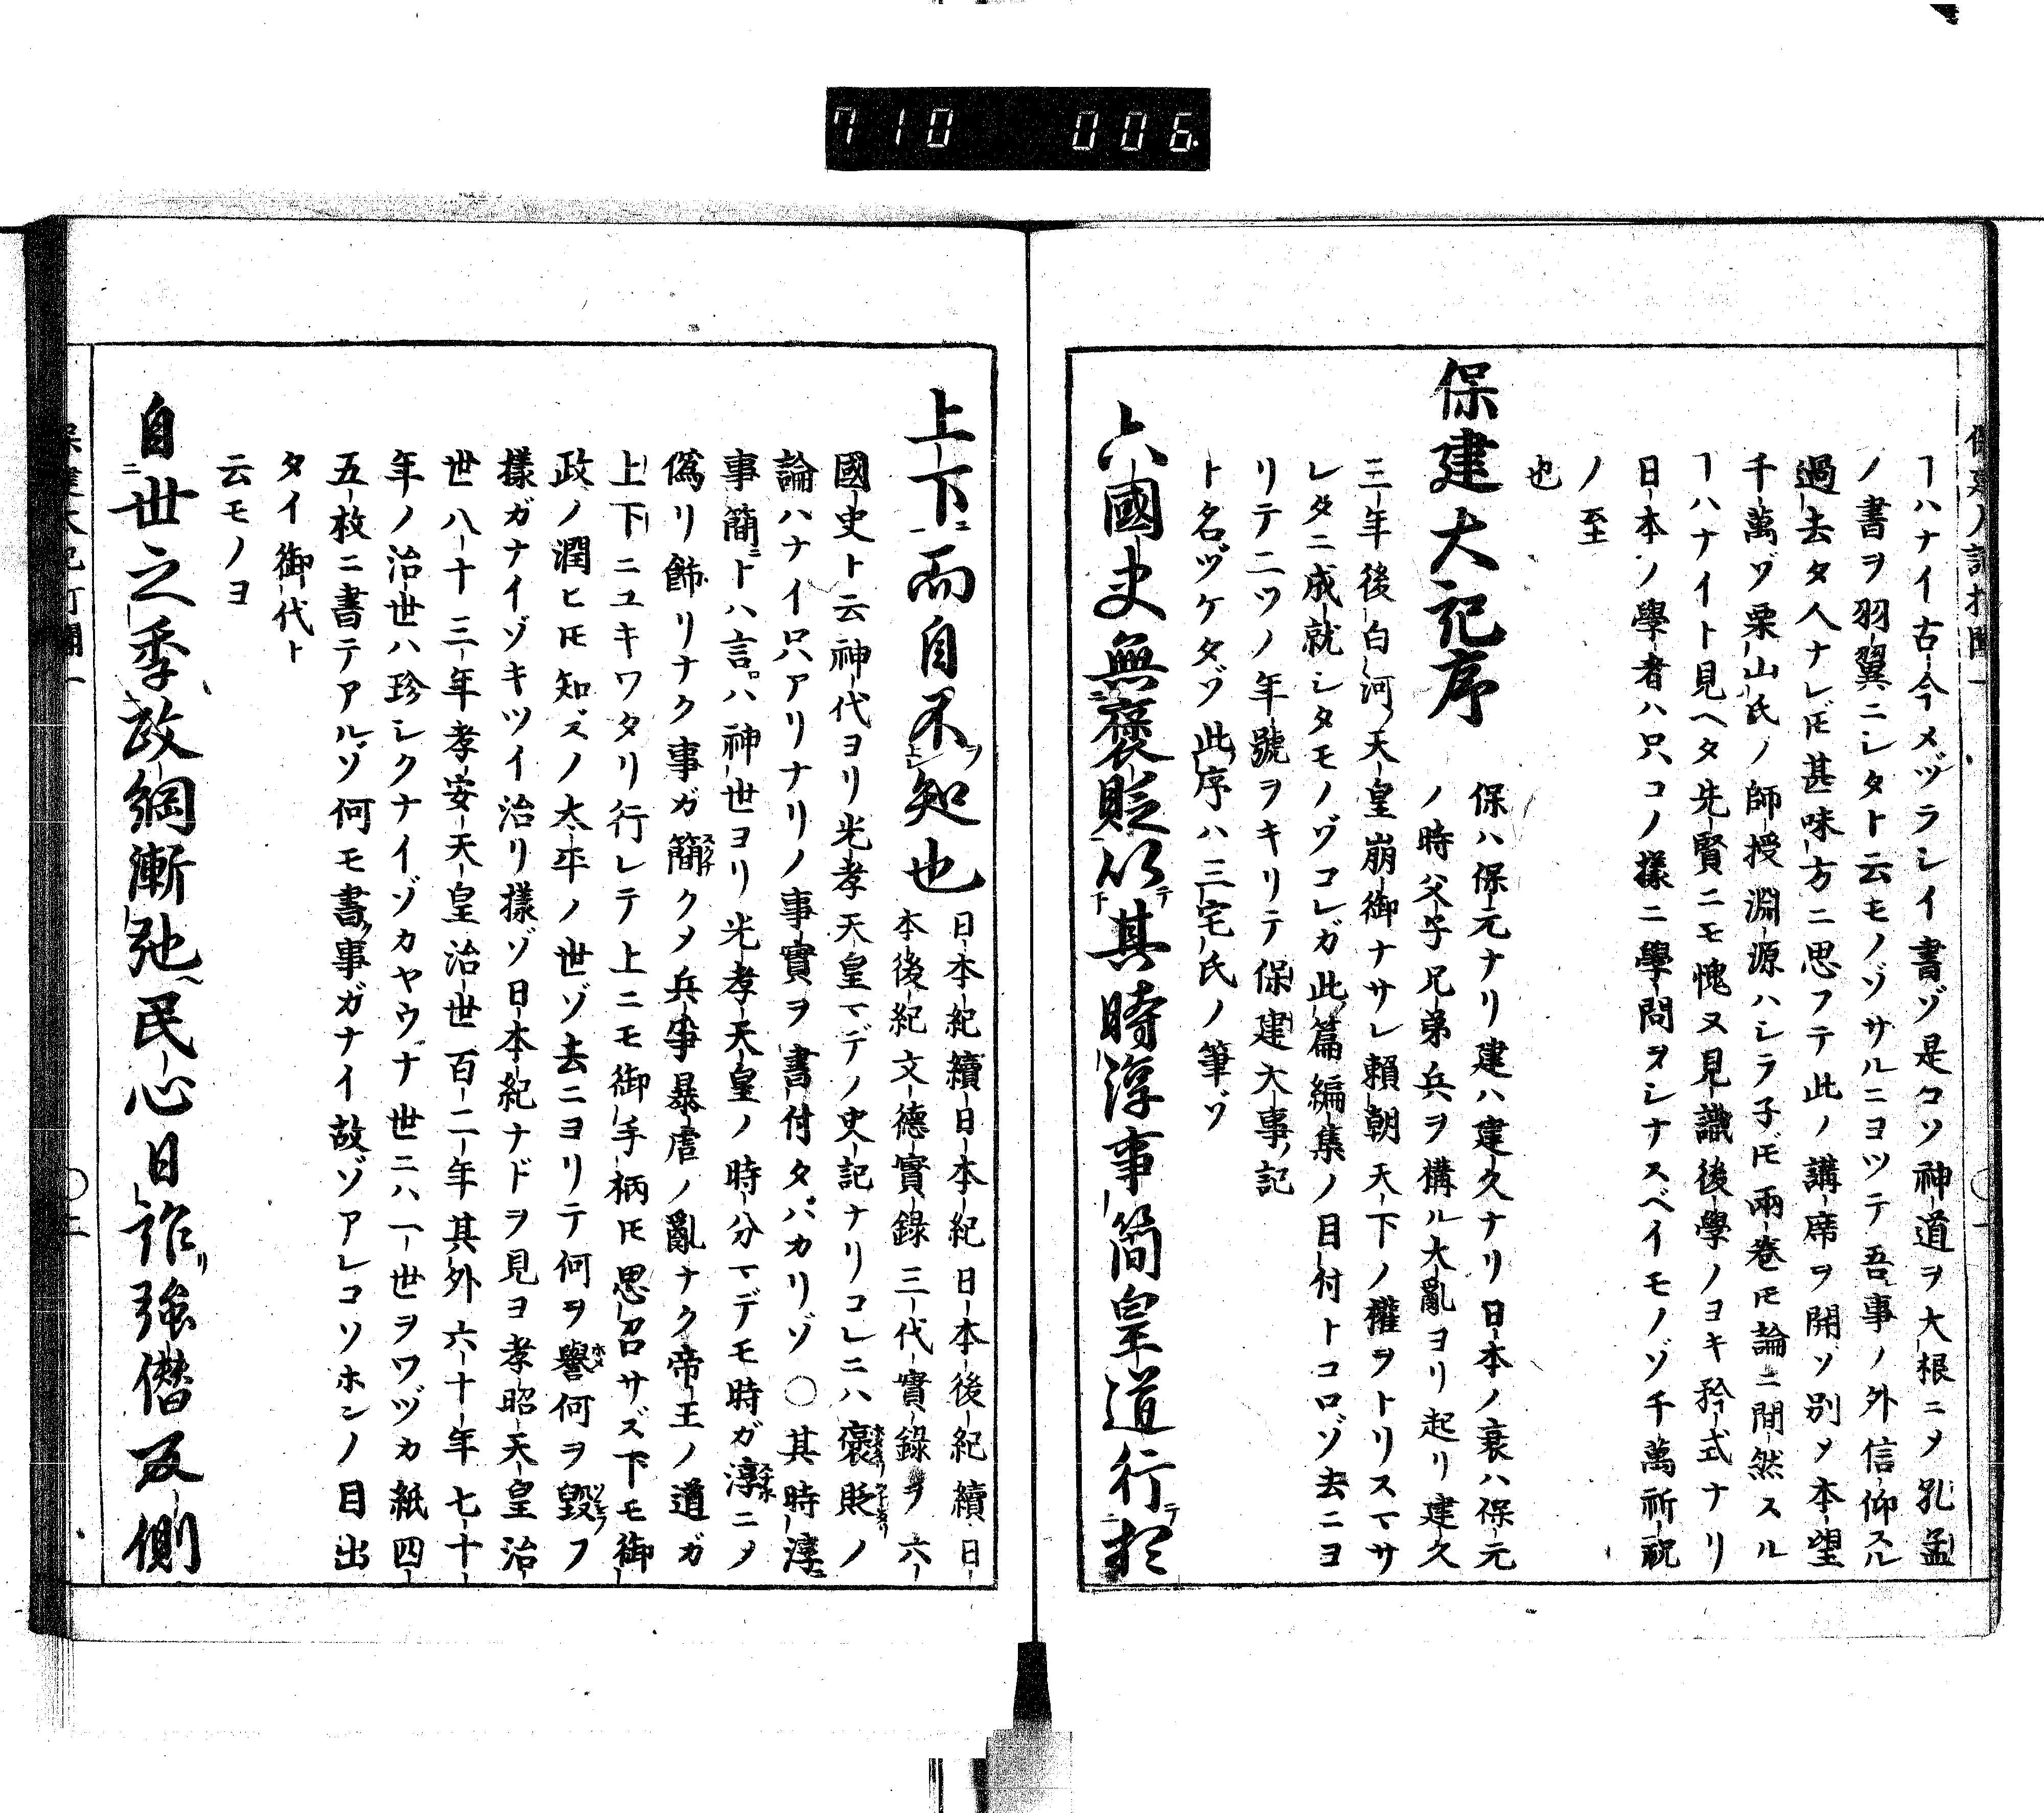 710 006
ヿハナイ古今メヅラシイ書ゾ是コソ神道ヲ大根ニメ孔孟
ノ書ヲ羽翼ニシタト云モノゾサルニヨツテ吾事ノ外信仰スル
過去タ人ナレ𪜈甚味方ニ思フテ此ノ講席ヲ開ソ別メ本望
千萬ゾ栗山氏ノ師授淵源ハシラ子𪜈兩卷𪜈論ニ間然スル
ヿハナイト見ヘタ先賢ニモ愧ヌ見識後學ノヨキ矜式ナリ
日本ノ學者ハ只コノ樣ニ學問ヲシナスベイモノゾ千萬祈祝
ノ至
也
保建大記序
保ハ保元ナリ建ハ建久ナリ日本ノ衰ハ保元
ノ時父子兄弟兵ヲ構ル大亂ヨリ起リ建久
三年後白河ノ天皇崩御ナサレ賴朝天下ノ權ヲトリスマサ
レタニ成就シタモノゾコレガ此篇編集ノ目付トコロゾ去ニヨ
リテ二ツノ年號ヲキリテ保建大事ノ記
ト名ヅケタゾ此序ハ三宅氏ノ筆ゾ
六國史無褒貶以其時淳事簡皇道行於
上下而自不知也
日本紀續日本紀日本後紀續日
本後紀文德實錄三代實錄ヲ六
國史ト云神代ヨリ光孝天皇マデノ史記ナリコレニハ褒貶ノ
論ハナイ只アリナリノ事實ヲ書付タバカリゾ〇其時淳
事簡ニトハ言ハ神世ヨリ光孝天皇ノ時分マデモ時ガ淳ニメ
僞リ飾リナク事ガ簡クメ兵爭暴虐ノ亂ナク帝王ノ道ガ
上下ニユキワタリ行レテ上ニモ御手柄𪜈思召サズ下モ御
政ノ潤ヒ𪜈知ズノ太平ノ世ゾ去ニヨリテ何ヲ譽何ヲ毀フ
樣ガナイゾキツイ治リ樣ゾ日本紀ナドヲ見ヨ孝昭天皇治
世八十三年孝安天皇治世百二年其外六十年七十
年ノ治世ハ珍シクナイゾカヤウナ世ニハ一世ヲワヅカ紙四
五枚ニ書テアルゾ何モ書ノ事ガナイ故ゾアレコソホンノ目出
タイ御代ト
云モノヨ
自世之季政綱漸弛民心日詐強僭反側